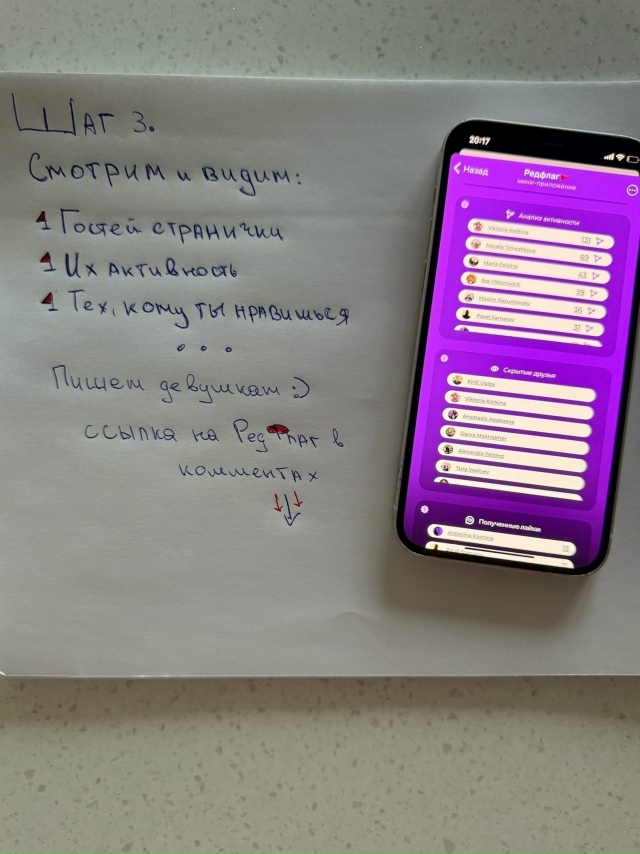 Шаг 3.
Смотрим и видим:
1 Гостей странички
1 Их активность
1 Тех, кому ты нравишься
...
Пишем девушкам :)
ссылка на РедФлаг в
комментах
20:17
Назад
Редфлаг
мини-приложение
Анализ активности
Viktoria Korkina 131
Natalia Timoshkova 69
Maria Felzing 43
Ilya Viktorovich 39
Maxim Razumovsky 36
Pavel Semenov 31
Скрытые друзья
Kirill Uglev
Viktoria Korkina
Anastasia
Darya
Alexandra Felzing
Yura Vasilyev
Полученные лайки
Antonina Korkina